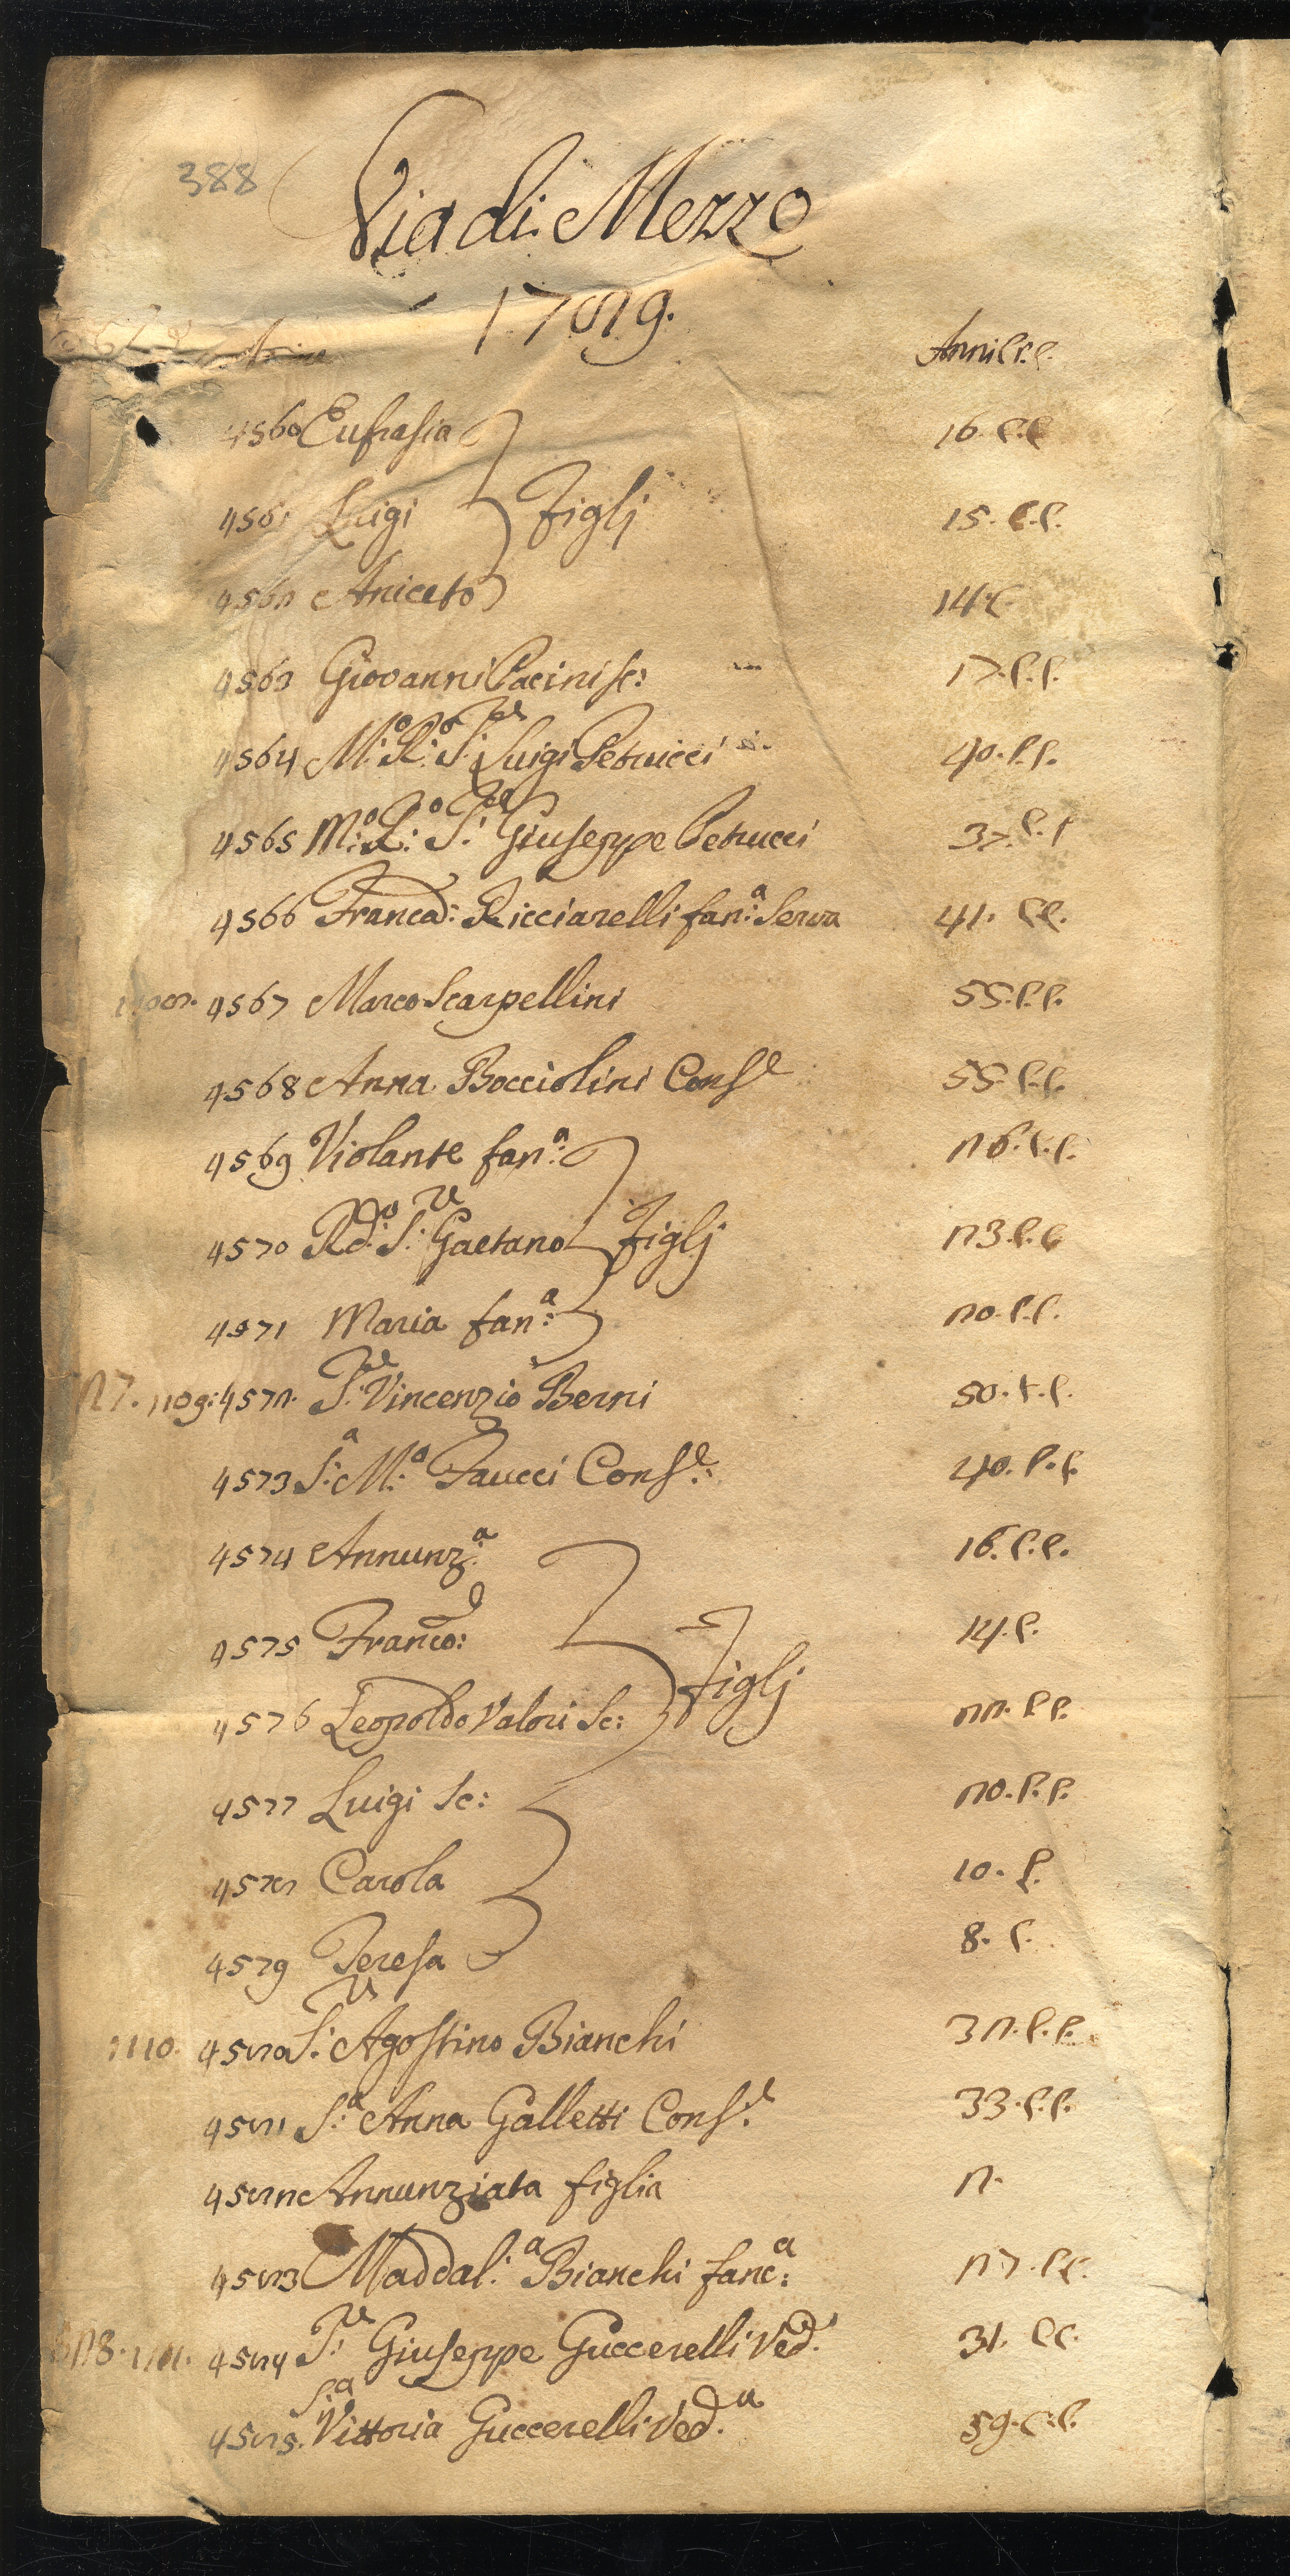 388
Via di Mezzo
1789.
Anni C.C.
4560 Eufrasia 16. C.C
4561 Luigi Figlj 15. C.C.
4562 Aniceto 14. C
4563 Giovanni Pacini sc: 17. C.C.
4564 M:o R:o S:re Luigi Petrucci 40. C.C.
4565 M:o R:o S:re Giuseppe Petrucci 37. C. C
4566 Franca: Ricciarelli fan:a Serva 41. C.C.
1108. 4567 Marco Scarpellini 55. C.C.
4568 Anna Bocciolini Conse 55. C.C.
4569 Violante fan:a 26. C.C.
4570 Rd:o S:r Gaetano Figlj 23. C.C
4571 Maria fan:a 20. C.C.
27. 1109: 4572. S:re Vincenzio Berni 50. C.C.
4573 S:a M:a Faucci Cons:e 40. C.C.
4574 Annunz:a 16. C.C.
4575 Franco: 14. C.
4576 Leopoldo Valori Sc: Figlj 22. C.C.
4577 Luigi Sc: 20. C.C.
4578 Carola 10. C.
4579 Teresa 8. C.
1110. 4580 S:r Agostino Bianchi 32. C.C.
4581 S:a Anna Galletti Cons:e 33. C.C.
4582 Annunziata figlia 2.
4583 Maddal:a Bianchi fanc:a 27. C.C.
628. 1111. 4584 S:r Giuseppe Guccerelli Ved:o 31. C.C.
4585. S:a Vittoria Guccerelli Ved:a 59. C.C.